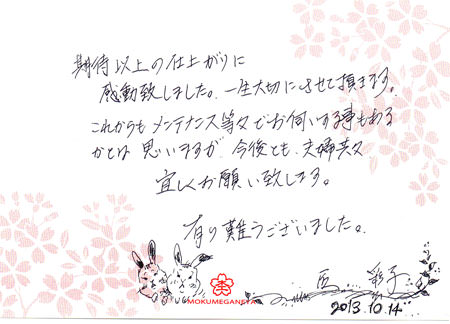 期待以上の仕上がりに
感動致しました。一生大切にさせて頂きます。
これからもメンテナンス等々でお伺いする事もある
かとは思いますが、今後とも、夫婦共々
宜しくお願い致します。
有り難うございました。
彩子
MOKUMEGANEYA
2013.10.14